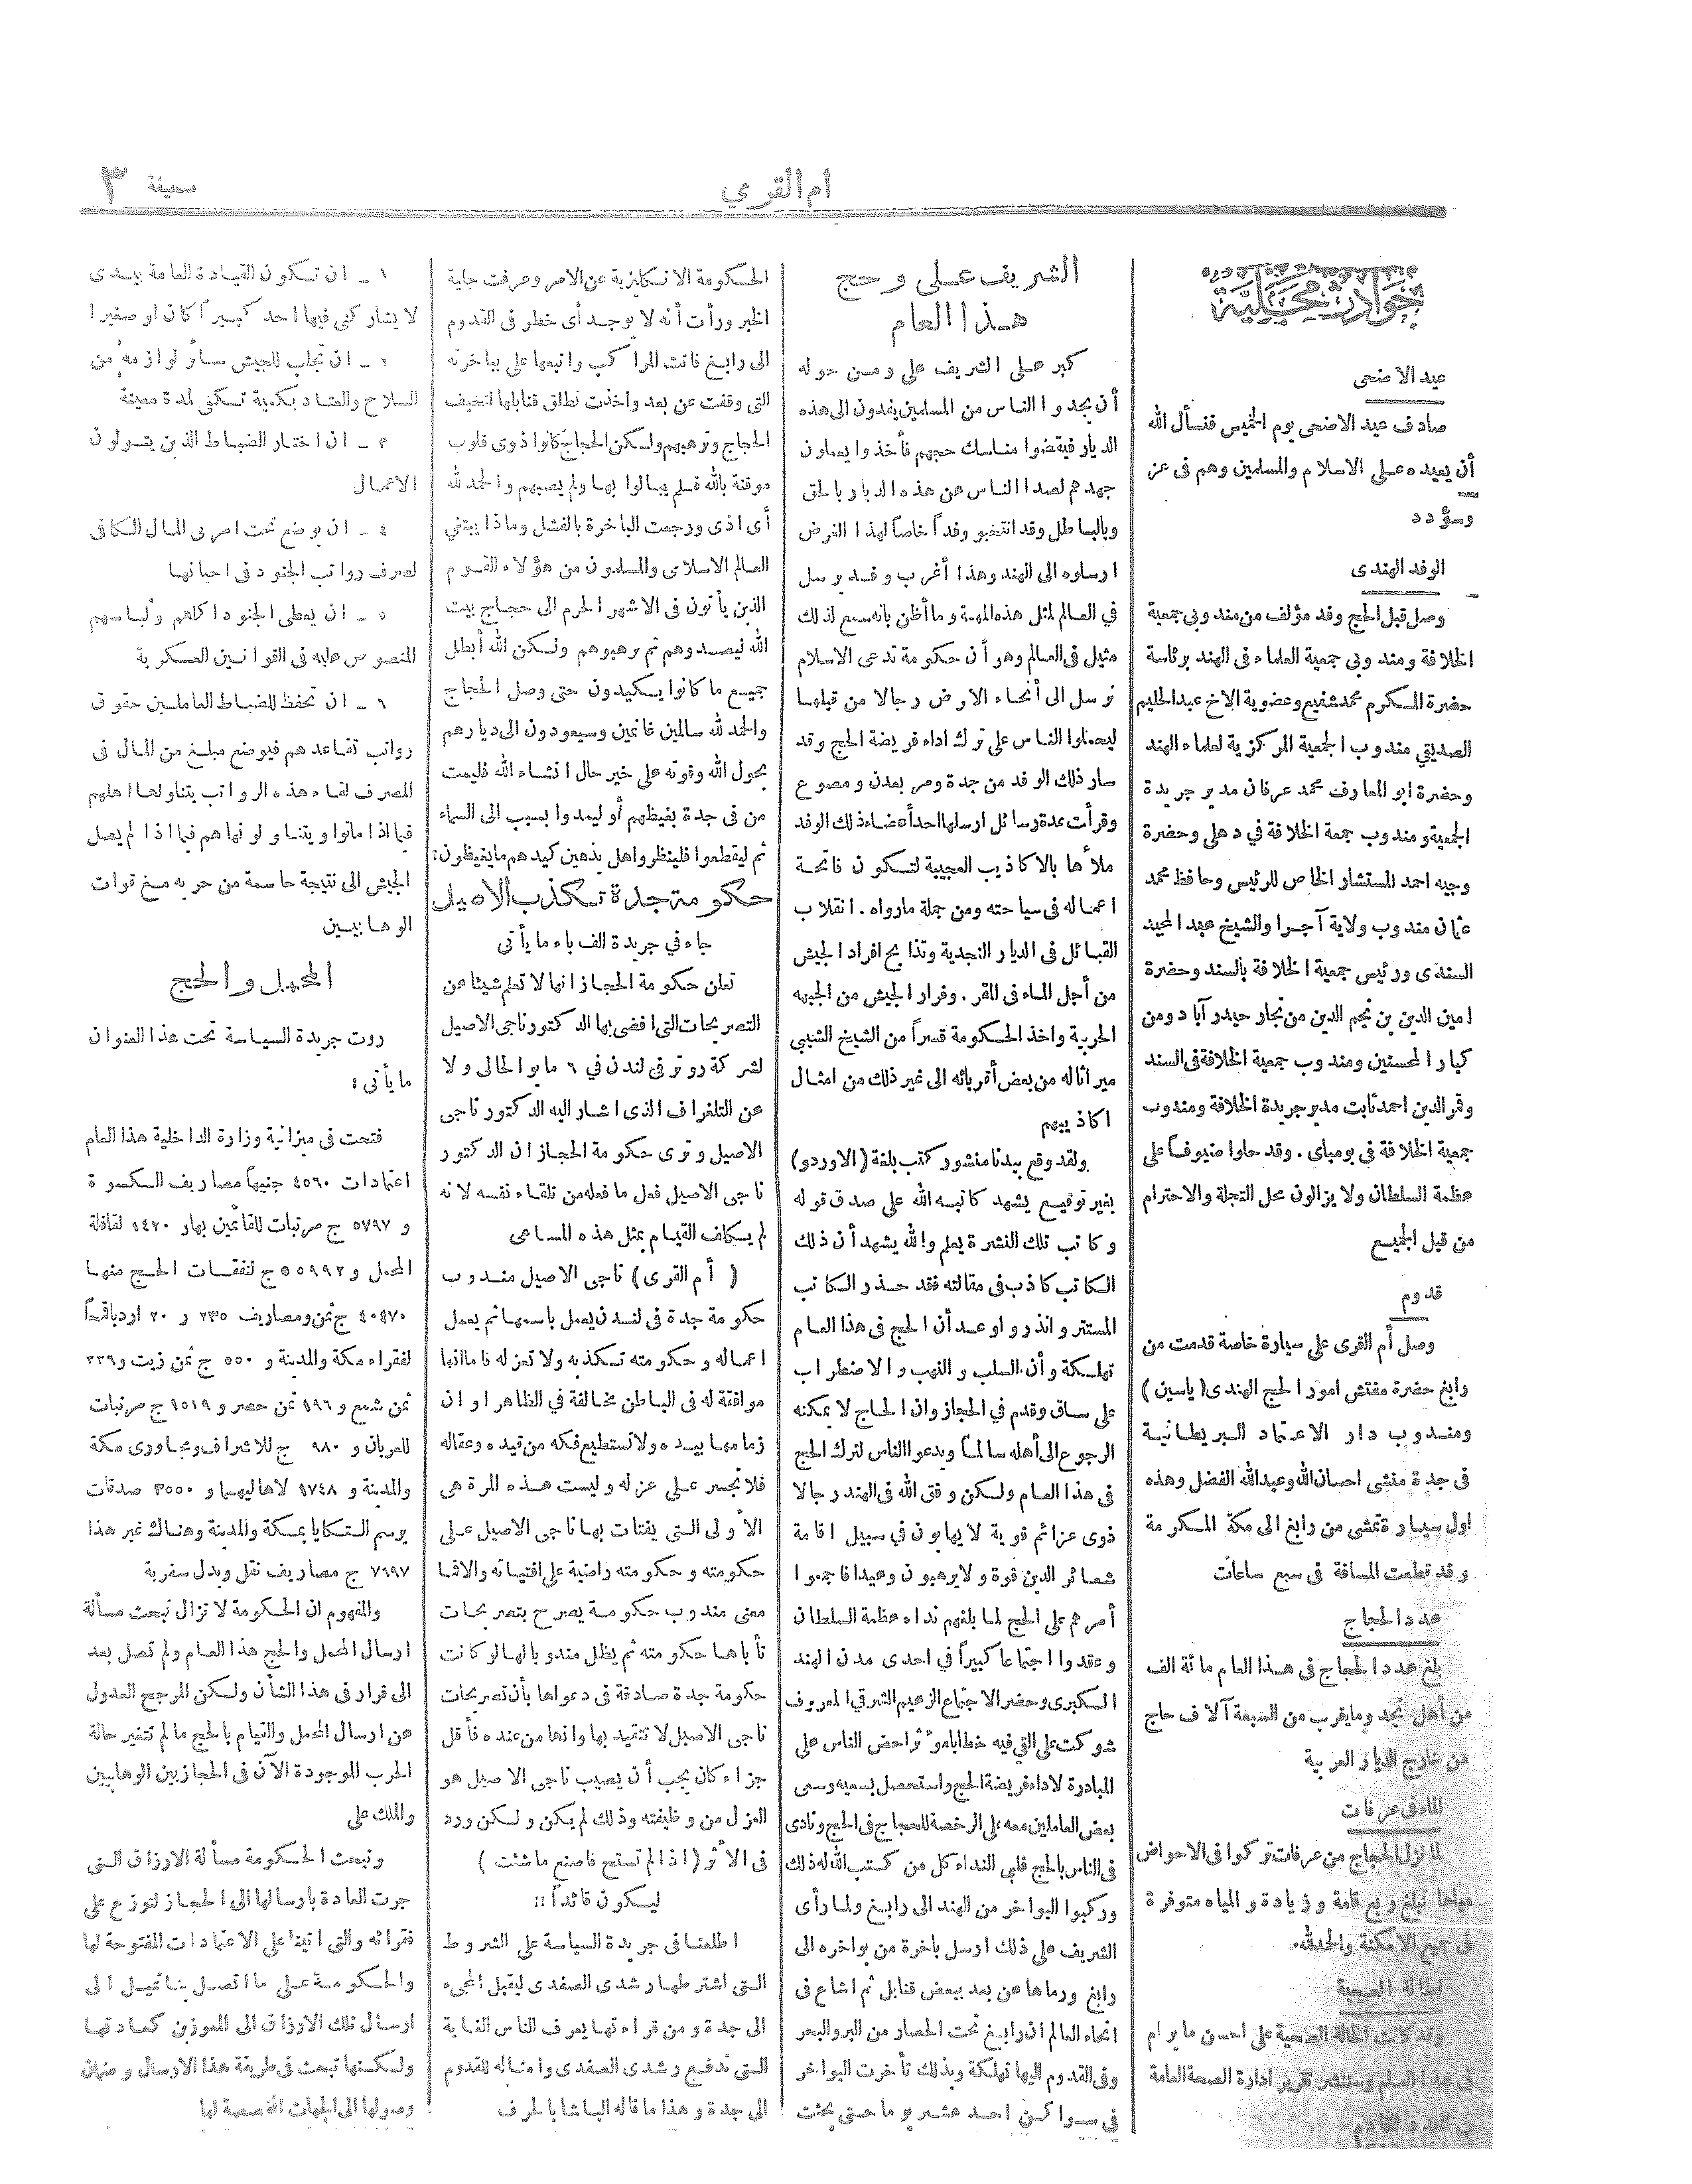 ام القرى
صحيفة ٣
حوادث محلية
عيد الاضحى
صادف عيد الاضحى يوم الخميس فنسأل الله
أن يعيده على الاسلام والمسلمين وهم فى عز
وسؤدد
الوفد الهندى
وصل قبل الحج وفد مؤلف من مندوبي جمعية
الخلافة ومندوبي جمعية العلماء فى الهند برئاسة
حضرة المكرم محمد شفيع وعضوية الاخ عبد الحليم
الصديقي مندوب الجمعية المركزية لعلماء الهند
وحضرة ابو المعارف محمد عرفان مدير جريدة
الجمعية ومندوب جمعة الخلافة في دهلي وحضرة
وجيه احمد المستشار الخاص للرئيس وحافظ محمد
عثمان مندوب ولاية آجرا والشيخ عبد المجيد
السندى ورئيس جمعية الخلافة بالسند وحضرة
امين الدين بن نجم الدين من تجار حيدر آباد ومن
كبار المحسنين ومندوب جمعية الخلافة فى السند
وقمر الدين احمد ثابت مدير جريدة الخلافة ومندوب
جمعية الخلافة في بومباى. وقد حلوا ضيوفاً على
عظمة السلطان ولا يزالون محل التجلة والاحترام
من قبل الجميع
قدوم
وصل أم القرى على سيارة خاصة قدمت من
رابغ حضرة مفتش امور الحج الهندى (ياسين)
ومندوب دار الاعتماد البريطانية
فى جدة منشى احسان الله وعبد الله الفضل وهذه
اول سيارة تمشى من رابغ الى مكة المكرمة
وقد قطعت المسافة فى سبع ساعات
عدد الحجاج
بلغ عدد الحجاج فى هذا العام مائة الف
من أهل نجد وما يقرب من السبعة آلاف حاج
من خارج الديار العربية
الماء فى عرفات
لما نزل الحجاج من عرفات تركوا فى الاحواض
مياها تبلغ ربع قامة وزيادة والمياه متوفرة
فى جميع الامكنة والحمد لله.
الحالة الصحية
وقد كانت الحالة الصحية على احسن ما يرام
فى هذا العام وستنشر تقرير ادارة الصحة العامة
فى العدد القادم
الشريف على وحج
هذا العام
كبر على الشريف على ومن حوله
أن يجدوا الناس من المسلمين يفدون الى هذه
الديار فيقضوا مناسك حجهم فأخذوا يعملون
جهدهم لصد الناس عن هذه الديار بالحق
وبالباطل وقد انتخبو وفداً خاصاً لهذا الغرض
ارسلوه الى الهند وهذا أغرب وفد يرسل
في العالم لمثل هذه المهمة وما أظن بانه سمع لذلك
مثيل فى العالم وهو أن حكومة تدعى الاسلام
ترسل الى أنحاء الارض رجالا من قبلها
ليحملوا الناس على ترك اداء فريضة الحج وقد
سار ذلك الوفد من جدة ومر بعدن ومصوع
وقرأت عدة رسائل ارسلها احد أعضاء ذلك الوفد
ملأها بالاكاذيب العجيبة لتكون فاتحة
اعماله فى سياحته ومن جملة مارواه. انقلاب
القبائل فى الديار النجدية وتذابح افراد الجيش
من أجل الماء فى المقر. وفرار الجيش من الجبهه
الحربية واخذ الحكومة قسراً من الشيخ الشيبي
ميراثاله من بعض أقربائه الى غير ذلك من امثال
اكاذيبهم
ولقد وقع بيدنا منشور كتب بلغة (الاوردو)
بغير توقيع يشهد كاتبه الله على صدق قوله
وكاتب تلك النشرة يعلم والله يشهد أن ذلك
الكاتب كاذب فى مقالته فقد حذر الكاتب
المستتر وانذر واوعد أن الحج فى هذا العام
تهلكة وأن السلب والنهب والاضطراب
على ساق وقدم في الحجاز وان الحاج لا يمكنه
الرجوع الى أهله سالماً ويدعوا الناس لترك الحج
فى هذا العام ولكن وفق الله فى الهند رجالا
ذوى عزائم قوية لا يهابون في سبيل اقامة
شعائر الدين قوة ولا يرهبون وعيدا فاجمعوا
أمرهم على الحج لما بلغهم نداء عظمة السلطان
وعقدوا اجتماعا كبيراً في احدى مدن الهند
الكبرى وحضر الاجتماع الزعيم الشرقي المعروف
شوكت على القي فيه خطابا مؤثراحض الناس على
المبادرة لاداء فريضة الحج واستحصل بسعيه وسعى
بعض العاملين معه على الرخصة للحجاج فى الحج ونادى
فى الناس بالحج فلبى النداء كل من كتب الله له ذلك
وركبوا البواخر من الهند الى رابغ ولما رأى
الشريف على ذلك ارسل باخرة من بواخره الى
رابغ ورماها عن بعد ببعض قنابل ثم اشاع فى
انحاء العالم ان رابغ تحت الحصار من البر والبحر
وفى القدوم اليها تهلكة وبذلك تأخرت البواخر
في سواكن احد عشر يوما حتى بحثت
الحكومة الانكليزية عن الامر وعرفت جلية
الخبر ورأت أنه لا يوجد أى خطر فى القدوم
الى رابغ فاتت المراكب واتبعها على بباخرته
التى وقفت عن بعد واخذت تطلق قنابلها لتخيف
الحجاج وترهبهم ولكن الحجاج كانوا ذوى قلوب
موقنة بالله فلم يبالوا بها ولم يصبهم والحمد لله
أى اذى ورجعت الباخرة بالفشل وماذا يبتغي
العالم الاسلامى والمسلمون من هؤلاء القوم
الذين يأتون فى الاشهر الحرم الى حجاج بيت
الله ليصدوهم ثم يرهبوهم ولكن الله أبطل
جميع ما كانوا يكيدون حتى وصل الحجاج
والحمد لله سالمين غانمين وسيعودون الى ديارهم
بحول الله وقوته على خير حال انشاء الله فليمت
من فى جدة بغيظهم أو ليمدوا بسبب الى السماء
ثم ليقطعوا فلينظروا هل يذهبن كيدهم ما يغيظون؛
حكومة جدة تكذب الاصيل
جاء في جريدة الف باء ما يأتى
تعلن حكومة الحجاز انها لا تعلم شيئا عن
التصريحات التى افضى بها الدكتور ناجى الاصيل
لشركة روتر فى لندن في ٦ مايو الحالى ولا
عن التلغراف الذى اشار اليه الدكتور ناجى
الاصيل وترى حكومة الحجاز ان الدكتور
ناجى الاصيل فعل ما فعله من تلقاء نفسه لانه
لم يكلف القيام بمثل هذه المساعى
( أم القرى ) ناجى الاصيل مندوب
حكومة جدة فى لندن يعمل باسمها ثم يعمل
اعماله وحكومته تكذبه ولا تعزله فاما انها
موافقة له فى الباطن مخالفة في الظاهر او ان
زمامها بيده ولا تستطيع فكه من قيده وعقاله
فلا تجسر على عزله وليست هذه المرة هى
الأولى التى يفتات بها ناجى الاصيل على
حكومته وحكومته راضية على افتياته والا فما
معنى مندوب حكومة يصرح بتصريحات
تأباها حكومته ثم يظل مندوبا لها لو كانت
حكومة جدة صادقة فى دعواها بأن تصريحات
ناجى الاصيل لا تتقيد بها وانها من عنده فأقل
جزاء كان يجب أن يصيب ناجى الاصيل هو
العزل من وظيفته وذلك لم يكن ولكن ورد
فى الأثر ( اذا لم تستح فاصنع ما شئت )
ليكون قائداً !!
اطلعنا فى جريدة السياسة على الشروط
التى اشترطها رشدى الصفدى ليقبل المجىء
الى جدة ومن قراءتها يعرف الناس الغاية
التى تدفع رشدى الصفدى وامثاله للقدوم
الى جدة وهذا ما قاله الباشا بالحرف
١ ـ ان تكون القيادة العامة بيدى
لا يشاركنى فيها احد كبيراً كان او صغيرا
٢ ـ ان تجلب للجيش سائر لوازمه من
السلاح والعتاد بكمية تكفى لمدة معينة
٣ ـ ان اختار الضباط الذين يتولون
الاعمال
٤ ـ ان يوضع تحت امرى المال الكافى
لصرف رواتب الجنود فى احيانها
٥ ـ ان يعطى الجنود اكلهم ولباسهم
المنصوص عليه فى القوانين العسكرية
٦ ـ ان تحفظ للضباط العاملين حقوق
رواتب تقاعدهم فيوضع مبلغ من المال فى
المصرف لقاء هذه الرواتب يتناولها اهلهم
فيما اذا ماتوا ويتناولونها هم فيما اذا لم يصل
الجيش الى نتيجة حاسمة من حربه مع قوات
الوهابيين
المحمل والحج
روت جريدة السياسة تحت هذا العنوان
ما يأتى :
فتحت فى ميزانية وزارة الداخلية هذا العام
اعتمادات ٤٥٦٠ جنيهاً مصاريف الكسوة
و ٥٧٩٧ ج مرتبات للقائمين بها و ١٤٢٠ لقافلة
المحمل و ٥٥٩٩٢ ج لنفقات الحج منها
٤٠٤٧٠ ج ثمن ومصاريف ٢٣٥ ر ٢٠ اردباقمحاً
لفقراء مكة والمدينة و ٥٥٠ ج ثمن زيت و ٢٣٩
ثمن شمع و ١٩٦ ثمن حصر و ١٥١٩ ج مرتبات
للعربان و ٩٨٠ ج للاشراف ومجاورى مكة
والمدينة و ١٧٤٨ لاهاليهما و ٣٥٥٠ صدقات
برسم التكايا بمكة والمدينة وهناك غير هذا
٧٦٩٧ ج مصاريف نقل وبدل سفرية
والمفهوم ان الحكومة لا تزال تبحث مسألة
ارسال المحمل والحج هذا العام ولم تصل بعد
الى قرار فى هذا الشأن ولكن المرجح العدول
عن ارسال المحمل والقيام بالحج ما لم تتغير حالة
الحرب الموجودة الآن فى الحجاز بين الوهابيين
والملك على
وتبحث الحكومة مسألة الارزاق التى
جرت العادة بارسالها الى الحجاز لتوزع على
فقرائه والتى اتينا على الاعتمادات المفتوحة لها
والحكومة على ما اتصل بنا تميل الى
ارسال تلك الارزاق الى المعوزين كعادتها
ولكنها تبحث فى طريقة هذا الارسال وضمان
وصولها الى الجهات المخصصة لها